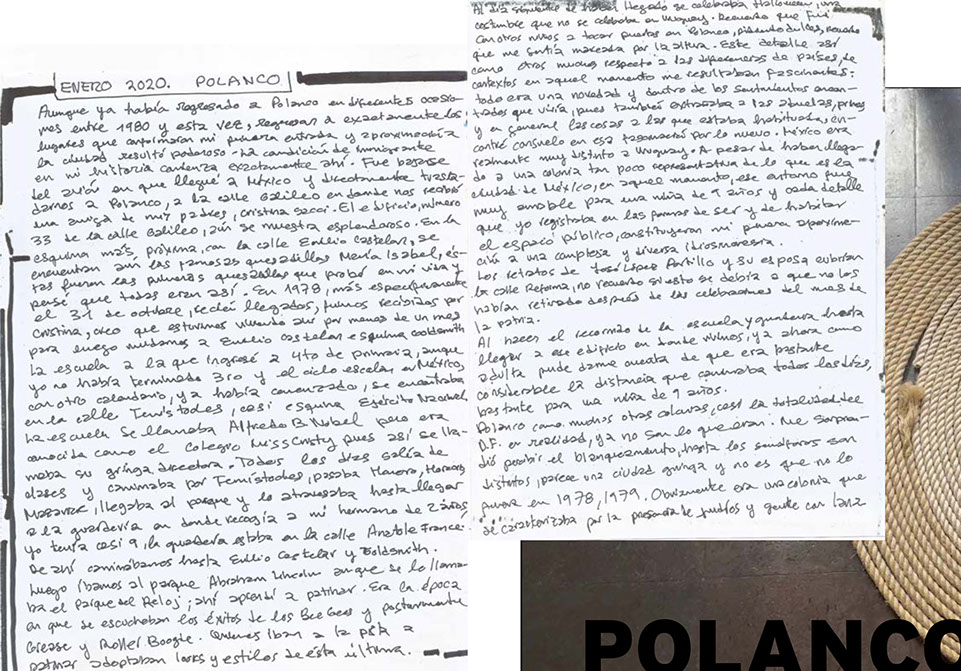 ENERO 2020. POLANCO
Aunque ya había regresado a Polanco en diferentes ocasio-
nes entre 1980 y esta vez, regresar a exactamente los
lugares que conformaron mi primera entrada y aproximación a
la ciudad resultó poderoso. La condición de inmigrante
en mi historia comienza exactamente ahí. Fue bajarse
del avión en que llegué a México y directamente trasla-
darnos a Polanco, a la calle Galileo en donde nos recibió
una amiga de mis padres, Cristina Secci. El edificio, número
33 de la calle Galileo, aún se muestra esplendoroso. En la
esquina más próxima, con la calle Emilio Castelar, se
encuentran aún las famosas quesadillas María Isabel, és-
tas fueron las primeras quesadillas que probé en mi vida y
pensé que todas eran así. En 1978, más específicamente
el 31 de octubre, recién llegados, fuimos recibidos por
Cristina, creo que estuvimos viviendo ahí por menos de un mes
para luego mudarnos a Emilio Castelar esquina Goldsmith
La escuela a la que ingresé a 4to de primaria, aunque
yo no había terminado 3ro y el ciclo escolar en México,
con otro calendario, ya había comenzado, se encontraba
en la calle Temístocles, casi esquina Ejército Nacional.
La escuela se llamaba Alfredo B. Nobel pero era
conocida como el Colegio Miss Cristy pues así se lla-
maba su gringa directora. Todos los días salía de
clases y caminaba por Temístocles, pasaba Homero, Horacio,
Masaryk, llegaba al parque y lo atravesaba hasta llegar
a la guardería en donde recogía a mi hermano de 2 años
yo tenía casi 9, la guardería estaba en la calle Anatole France.
De ahí caminábamos hasta Emilio Castelar y Goldsmith.
Luego íbamos al parque Abraham Lincoln aunque se lo llama-
ba el Parque del Reloj, ahí aprendí a patinar. Era la época
en que se escuchaban los éxitos de los Bee Gees y posteriormente
Grease y Roller Boogie. Quienes iban a la pista a
patinar adoptaban looks y estilos de ésta última.
Al día siguiente de haber llegado se celebraba Halloween, una
costumbre que no se celebraba en Uruguay. Recuerdo que fui
con otros niños a tocar puertas en Polanco, pidiendo dulces, recuerdo
que me sentía mareada por la altura. Este detalle así
como otros muchos respecto a las diferencias de países, de
contextos en aquel momento me resultaban fascinantes.
todo era una novedad y dentro de los sentimientos encon-
trados que vivía, pues también extrañaba a las abuelas, primos
y en general las cosas a las que estaba habituada, en-
contré consuelo en esa fascinación por lo nuevo. México era
realmente muy distinto a Uruguay. A pesar de haber llega-
do a una colonia tan poco representativa de lo que es la
ciudad de México, en aquel momento, ese entorno fue
muy amable para una niña de 9 años y cada detalle
que yo registraba en las formas de ser y de habitar
el espacio público, constituyeron mi primera aproxima-
ción a una compleja y diversa idiosincrasia.
Los retratos de José López Portillo y su esposa cubrían
la calle Reforma, no recuerdo si esto se debía a que no los
habían retirado después de las celebraciones del mes de
la patria.
Al hacer el recorrido de la escuela y guardería hasta
llegar a ese edificio en donde vivimos, ya ahora como
adulta pude darme cuenta de que era bastante
considerable la distancia que caminaba todos los días,
bastante para una niña de 9 años.
Polanco como muchas otras colonias, casi la totalidad del
D.F. en realidad, ya no son lo que eran. Me sorpren-
dió percibir el blanqueamiento, hasta los sonidos son
distintos, parece una ciudad gringa y no es que no lo
fuera en 1978, 1979. Obviamente era una colonia que
se caracterizaba por la presencia de judíos y gente con lana
POLANCO